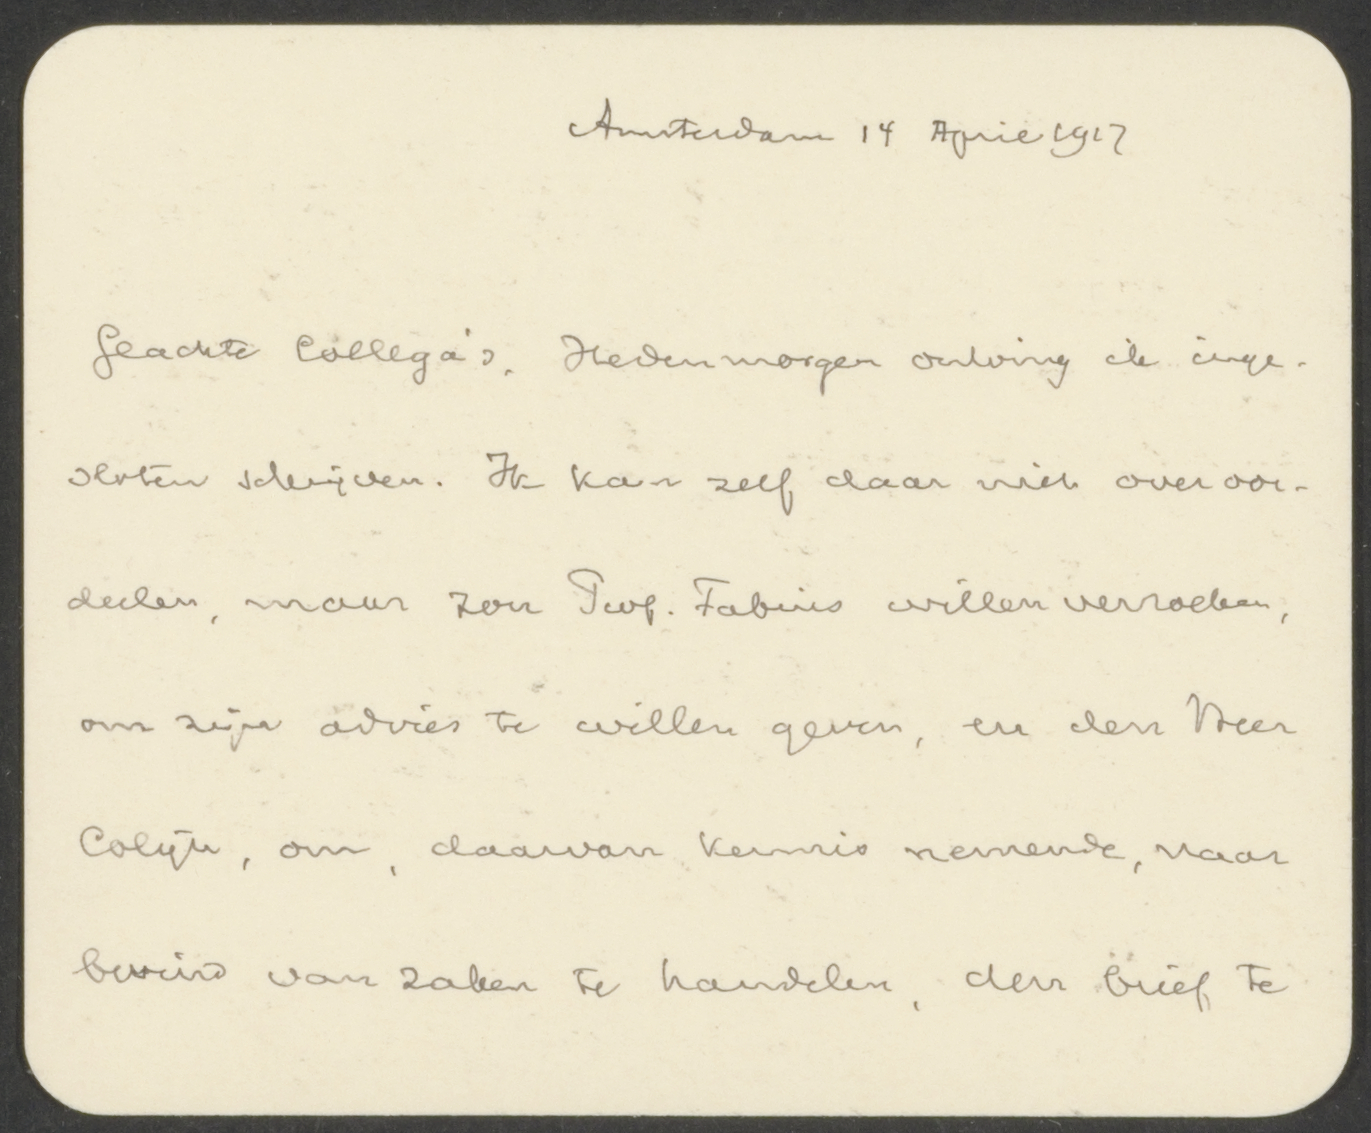 Amsterdam 14 April 1917
Geachte Collega's. Hedenmorgen ontving ik inge-
sloten schrijven. Ik kan zelf daar niet over oor-
deelen, maar zou Prof. Fabius willen verzoeken,
om zijn advies te willen geven, en den Heer
Colijn, om, daarvan kennis nemende, naar
bevind van zaken te handelen, den brief te